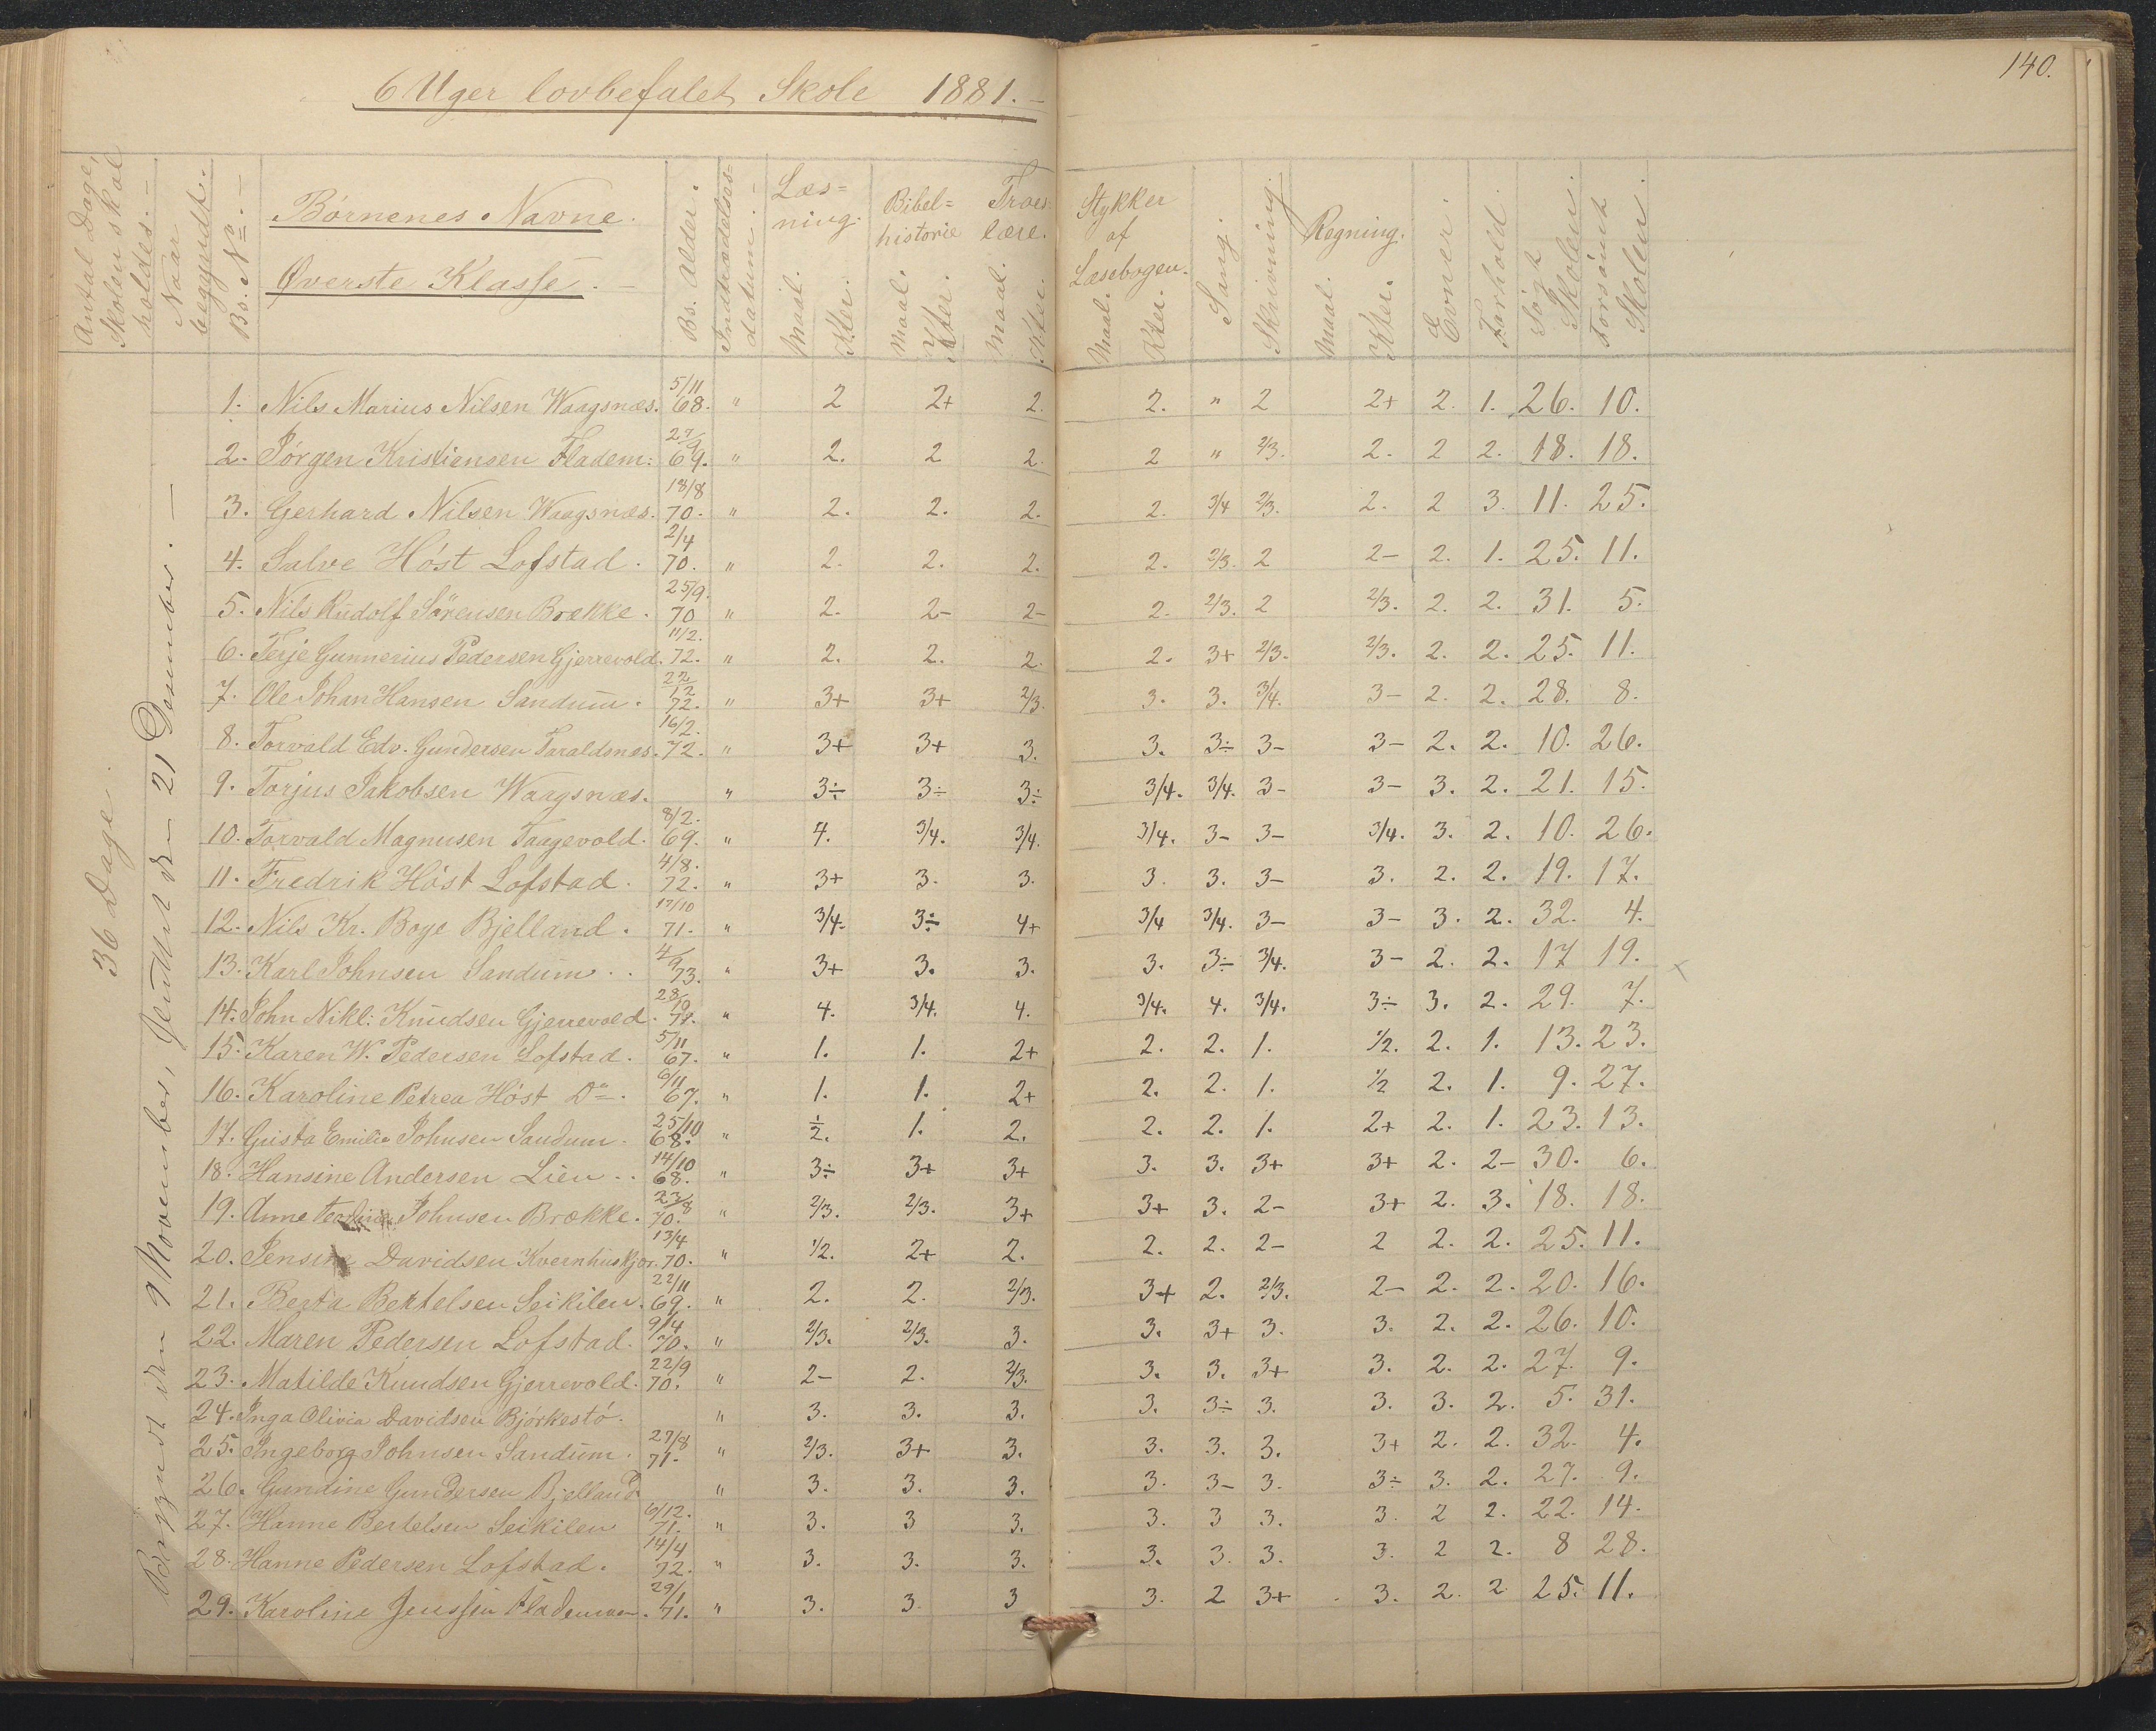 140.
6 Uger lovbefalet Skole 1881.
Antal Dage, Skolen skal holdes.
Naar begyndt.
Bs. No.
Børnenes Navne.
Øverste Klasse.
Bs. Alder.
Indtrædelses= datum.
Læs= ning. Maal. Kter.
Bibel= historie Maal. Kter.
Troes lære. Maal. Kter.
Stykker af Læsebogen. Maal. Kter.
Sang.
Skrivning.
Regning. Maal. Kter.
Evner.
Forhold.
Søgt Skolen.
Forsømt Skolen.
36 Dage.
Begyndt den 9 November, sluttet den 21 Desember.
1. Nils Marius Nilsen Waagsnæs. 5/11 68. " 2 2+ 2. 2. " 2 2+ 2. 1. 26. 10.
2. Jørgen Kristiensen Fladem: 27/9 69. " 2. 2 2. 2 " 2/3. 2. 2 2. 18. 18.
3. Gerhard Nilsen Waagsnæs. 18/8 70. " 2. 2. 2. 2. 3/4 2/3. 2. 2 3. 11. 25.
4. Salve Høst Lofstad. 2/4 70. " 2. 2. 2. 2. 2/3. 2 2- 2. 1. 25. 11.
5. Nils Rudolf Sörensen Brække. 25/9. 70 " 2. 2- 2- 2. 2/3. 2 2/3. 2. 2. 31. 5.
6. Terje Gunnerius Pedersen Gjerrevold. 11/2. 72. " 2. 2. 2. 2. 3+ 2/3. 2/3. 2. 2. 25. 11.
7. Ole Johan Hansen Sandum. 22/12 72. " 3+ 3+ 2/3. 3. 3. 3/4. 3- 2. 2. 28. 8.
8. Torvald Edv. Gundersen Taraldsnæs. 16/2. 72. " 3+ 3+ 3. 3. 3÷ 3- 3- 2. 2. 10. 26.
9. Torjus Jakobsen Waagsnæs. " 3÷ 3÷ 3÷ 3/4. 3/4. 3- 3- 3. 2. 21. 15.
10. Torvald Magnusen Taagevold. 8/2. 69. " 4. 3/4. 3/4. 3/4. 3- 3- 3/4. 3. 2. 10. 26.
11. Fredrik Høst Lofstad. 4/8. 72. " 3+ 3. 3. 3. 3. 3- 3. 2. 2. 19. 17.
12. Nils Kr. Boye Bjelland. 17/10 71. " 3/4. 3÷ 4+ 3/4 3/4. 3- 3- 3. 2. 32. 4.
13. Karl Johnsen Sandum.. 4/9 73. " 3+ 3. 3. 3. 3÷ 3/4. 3- 2. 2. 17 19.
14. John Nikl: Knudsen Gjerrevold. 28/10 71. " 4. 3/4. 4. 3/4. 4. 3/4. 3÷ 3. 2. 29. 7.
15. Karen W. Pedersen Lofstad. 5/11 67. " 1. 1. 2+ 2. 2. 1. 1/2. 2. 1. 13. 23.
16. Karoline Petrea Høst Do. 6/11 67. " 1. 1. 2+ 2. 2. 1. 1/2 2. 1. 9. 27.
17. Gusta Emilie Johnsen Sandum. 25/10 68. " 1/2. 1. 2. 2. 2. 1. 2+ 2. 1. 23. 13.
18. Hansine Andersen Lien.. 14/10 68. " 3÷ 3+ 3+ 3. 3. 3+ 3+ 2. 2- 30. 6.
19. Anne Johnsen Brække. 23/8 70. " 2/3. 2/3. 3+ 3+ 3. 2- 3+ 2. 3. 18. 18.
20. Jensine Davidsen Kvernhuskjær. 13/4 70. " 1/2. 2+ 2. 2. 2. 2- 2 2. 2. 25. 11.
21. Berta Bertelsen Seikilen. 22/11 69. " 2. 2. 2/3. 3+ 2. 2/3. 2- 2. 2. 20. 16.
22. Maren Pedersen Lofstad. 9/4 70. " 2/3. 2/3. 3. 3. 3+ 3. 3. 2. 2. 26. 10.
23. Matilde Knudsen Gjerrevold. 22/9 70. " 2- 2. 2/3. 3. 3. 3+ 3. 2. 2. 27. 9.
24. Inga Olivia Davidsen Bjørkestø. " 3. 3. 3. 3. 3÷ 3. 3. 3. 2. 5. 31.
25. Ingeborg Johnsen Sandum. 27/8 71. " 2/3. 3+ 3. 3. 3. 3. 3+ 2. 2. 32. 4.
26. Gundine Gundersen Bjelland " 3. 3. 3. 3. 3- 3. 3÷ 3. 2. 27. 9.
27. Hanne Bertelsen Seikilen 6/12. 71. " 3. 3 3. 3. 3 3. 3. 2 2. 22. 14.
28. Hanne Pedersen Lofstad. 14/4 72. " 3. 3. 3. 3. 3. 3. 3. 2 2. 8 28.
29. Karoline Jenssen Flademoen. 29/1 71. " 3. 3. 3 3. 2 3+ 3. 2. 2 25. 11.